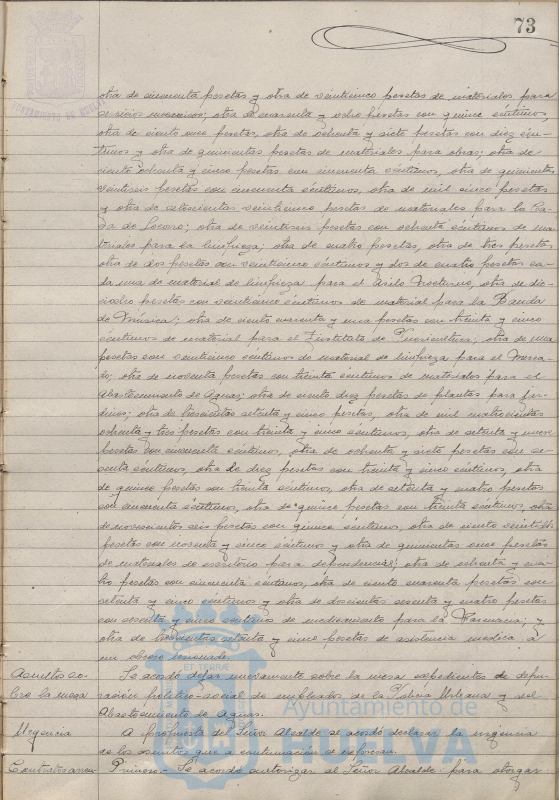 73
AYUNTAMIENTO DE HUELVA
otra de cincuenta pesetas y otra de veinticinco pesetas de materiales para
servicios mecanicos; otra de cuarenta y ocho pesetas con quince céntimos,
otra de ciento once pesetas, otra de ochenta y siete pesetas con diez cén-
timos y otra de quinientas pesetas de materiales para obras; otra de
ciento ochenta y cinco pesetas con cincuenta céntimos, otra de quinientas
veintiseis pesetas con cincuenta céntimos, otra de mil cinco pesetas
y otra de ochocientas veinticinco pesetas de materiales para la Ca-
sa de Socorro; otra de veintiseis pesetas con ochenta céntimos de ma-
teriales para la limpieza; otra de cuatro pesetas, otra de tres pesetas
otra de dos pesetas con veinticinco céntimos y dos de cuatro pesetas ca-
da una de material de limpieza para el Asilo Nocturno, otra de die-
ciocho pesetas con veinticinco céntimos de material para la Banda
de Música; otra de ciento cuarenta y una pesetas con treinta y cinco
céntimos de material para el Instituto de Puericultura; otra de una
pesetas con veinticinco céntimos de material de limpieza para el Merca-
do; otra de noventa pesetas con treinta céntimos de materiales para el
abastecimiento de Aguas; otra de ciento diez pesetas de plantas para jar-
dines; otra de trescientas setenta y cinco pesetas, otra de mil cuatrocientas
ochenta y tres pesetas con treinta y cinco céntimos, otra de setenta y nueve
pesetas con cincuenta céntimos, otra de ochenta y siete pesetas con se-
senta céntimos, otra de diez pesetas con treinta y cinco céntimos, otra
de quince pesetas con treinta céntimos, otra de setenta y cuatro pesetas
con cincuenta céntimos, otra de quince pesetas con treinta céntimos, otra
de novecientas seis pesetas con quince céntimos, otra de ciento
pesetas con noventa y cinco céntimos y otra de quinientas once pesetas
de materiales de escritorio para dependencias; otra de ochenta y cua-
tro pesetas con cincuenta céntimos, otra de ciento cuarenta pesetas con
setenta y cinco céntimos y otra de doscientas sesenta y cuatro pesetas
con sesenta y cinco céntimos de medicamento para la Farmacia; y
otra de trescientas setenta y cinco pesetas de asistencia medica a
un obrero lesionado.
Asuntos so- Se acordó dejar nuevamente sobre la mesa expedientes de depu-
bre la mesa ración politico-social de empleados de la Policia Urbana y del
Abastecimiento de Aguas.
Urgencia A propuesta del Señor Alcalde se acordó declarar la urgencia
de los asuntos que a continuación se expresan.
Primero.- Se acordó autorizar al Señor Alcalde para otorgar
Ayuntamiento de
HUELVA